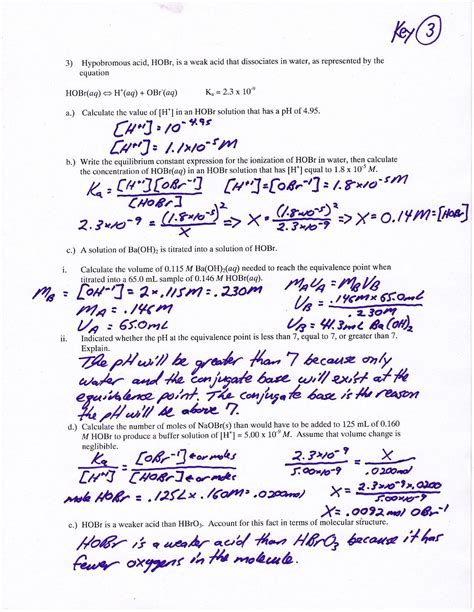 Key 3
3) Hypobromous acid, HOBr, is a weak acid that dissociates in water, as represented by the
equation
HOBr(aq) ⇔ H⁺(aq) + OBr⁻(aq) Kₐ = 2.3 x 10⁻⁹
a.) Calculate the value of [H⁺] in an HOBr solution that has a pH of 4.95.
[H⁺¹] = 10⁻⁴·⁹⁵
[H⁺¹] = 1.1x10⁻⁵ M
b.) Write the equilibrium constant expression for the ionization of HOBr in water, then calculate
the concentration of HOBr(aq) in an HOBr solution that has [H⁺] equal to 1.8 x 10⁻⁵ M.
Ka = [H⁺¹][OBr⁻¹] / [HOBr] [H⁺¹] = [OBr⁻¹] = 1.8x10⁻⁵ M
2.3x10⁻⁹ = (1.8x10⁻⁵)² / X => X = (1.8x10⁻⁵)² / 2.3x10⁻⁹ => X = 0.14M = [HOBr]
c.) A solution of Ba(OH)₂ is titrated into a solution of HOBr.
i. Calculate the volume of 0.115 M Ba(OH)₂(aq) needed to reach the equivalence point when
titrated into a 65.0 mL sample of 0.146 M HOBr(aq).
M_B = [OH⁻¹] = 2x.115M = .230M M_A V_A = M_B V_B
M_A = .146M V_B = .146M x 65.0mL / .230M
V_A = 65.0mL V_B = 41.3mL Ba(OH)₂
ii. Indicated whether the pH at the equivalence point is less than 7, equal to 7, or greater than 7.
Explain.
The pH will be greater than 7 because only
water and the conjugate base will exist at the
equivalence point. The conjugate base is the reason
the pH will be above 7.
d.) Calculate the number of moles of NaOBr(s) than would have to be added to 125 mL of 0.160
M HOBr to produce a buffer solution of [H⁺] = 5.00 x 10⁻⁹ M. Assume that volume change is
negligible.
Ka / [H⁺¹] = [OBr⁻¹] ← or moles / [HOBr] ← or moles 2.3x10⁻⁹ / 5.00x10⁻⁹ = X / .0200mol
mole HOBr = .125L x .160M = .0200mol X = 2.3x10⁻⁹ x .0200 / 5.00x10⁻⁹
X = .0092mol OBr⁻¹
e.) HOBr is a weaker acid than HBrO₃. Account for this fact in terms of molecular structure.
HOBr is a weaker acid than HBrO₃ because it has
fewer oxygens in the molecule.